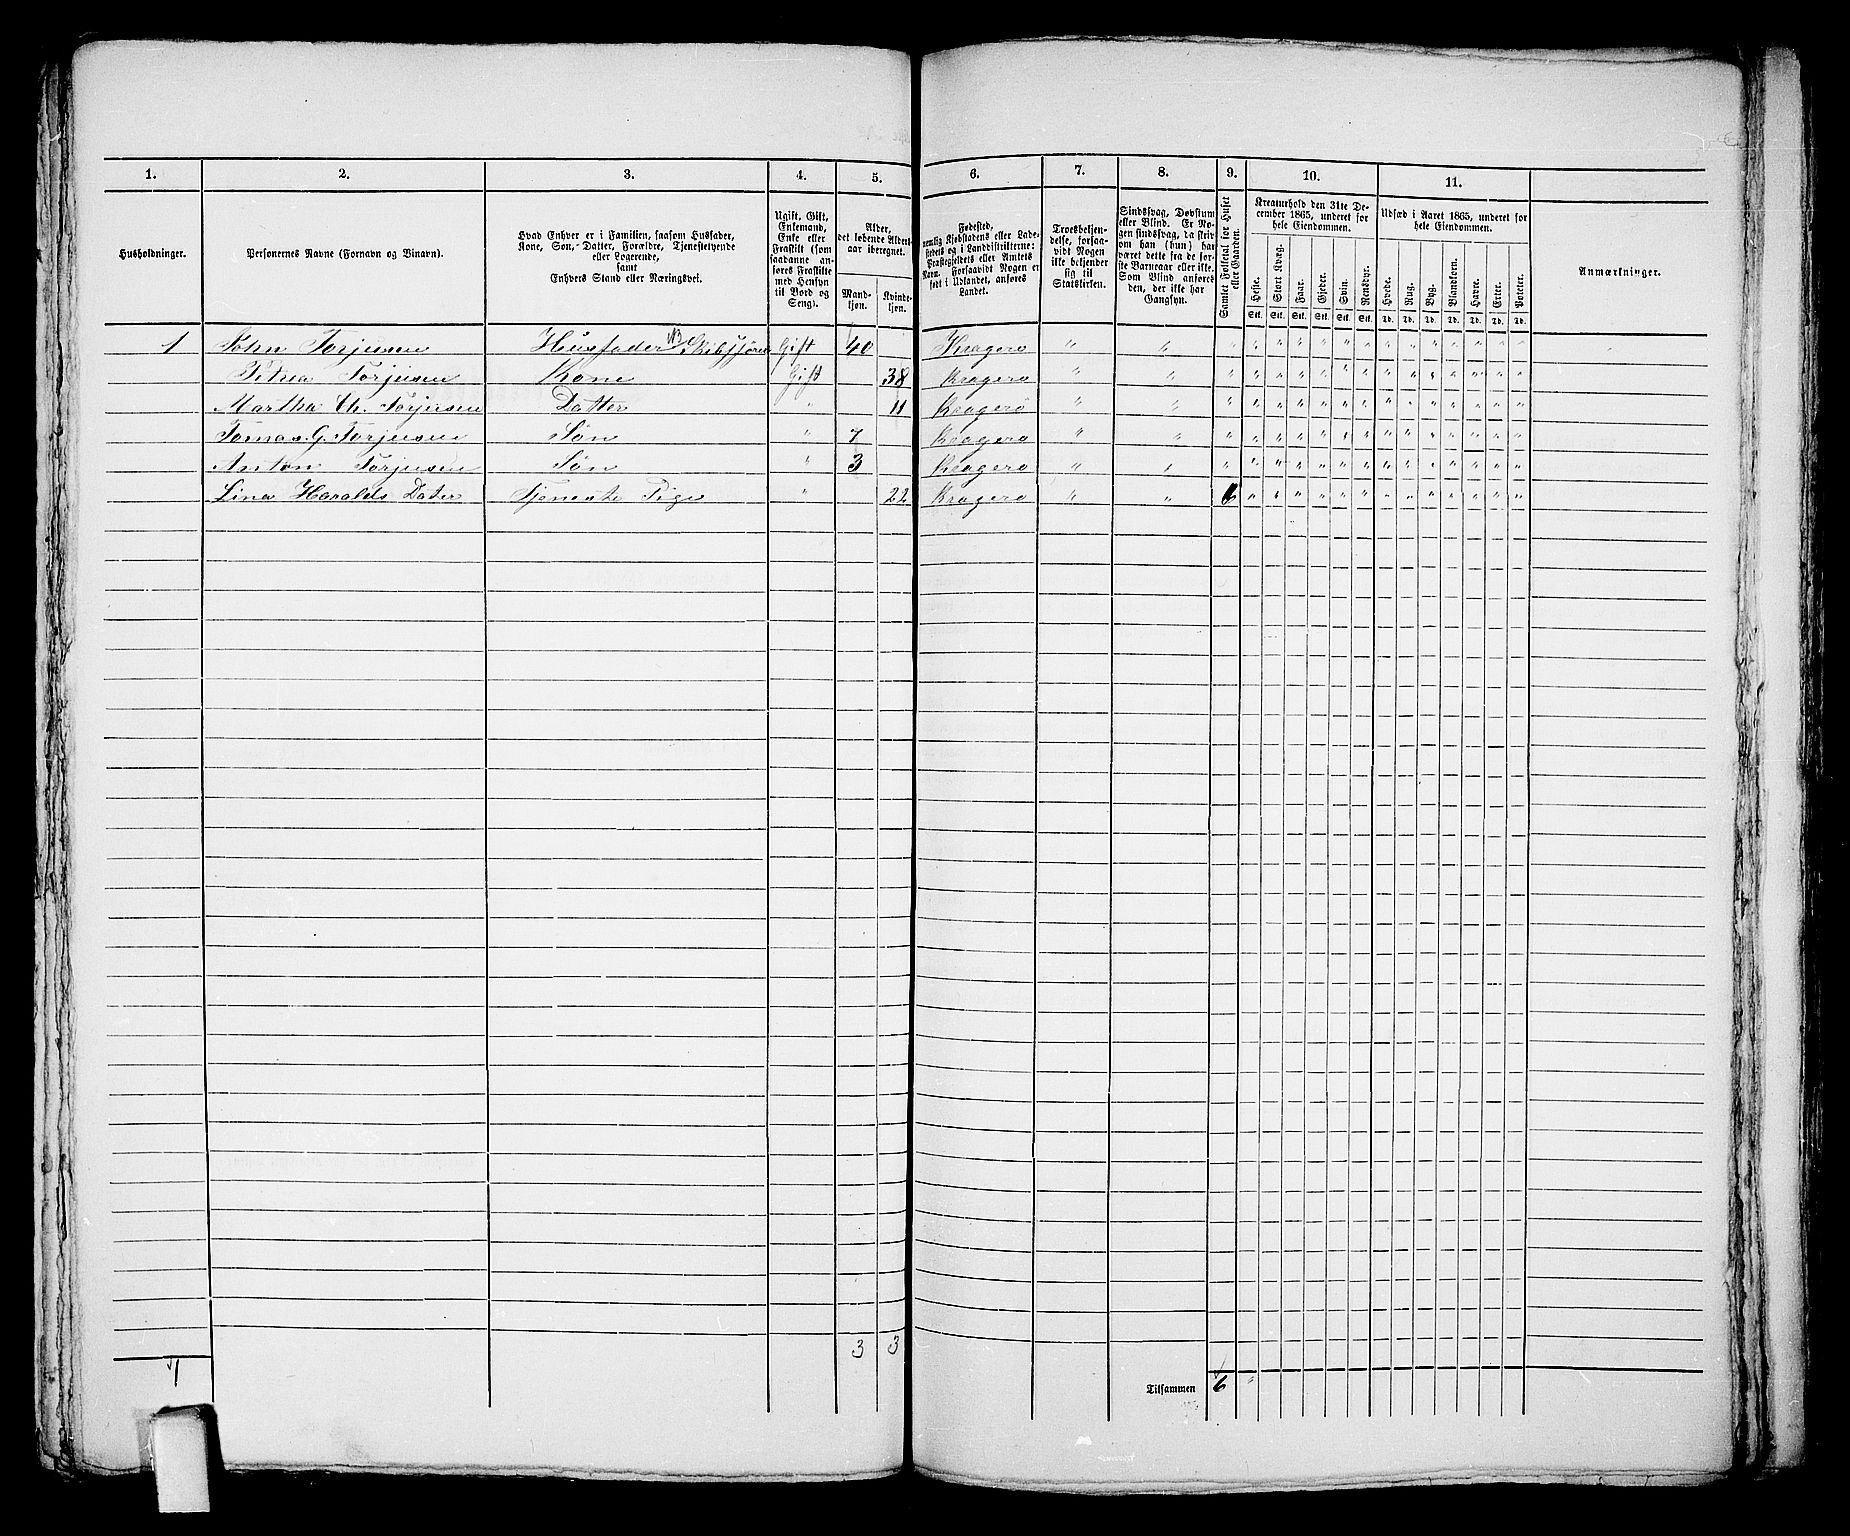 1. 2. 3. 4. 5. 6. 7. 8. 9. 10. 11.
Husholdninger.
Personernes Navne (Fornavn og Binavn).
Hvad Enhver er i Familien, saasom Husfader,
Kone, Søn, Datter, Forældre, Tjenestetyende
eller Logerende,
samt
Enhvers Stand eller Næringsvei.
Ugift, Gift,
Enkemand,
Enke eller
Fraskilt (som
saadanne an-
føres Fraskilte
med Hensyn
til Bord og
Seng).
Alder,
det løbende Alders-
aar iberegnet.
Mand-
kjøn.
Kvinde-
kjøn.
Fødested,
nemlig Kjøbstadens eller Lade-
stedets og i Landdistrikterne:
Præstegjeldets eller Amtets
Navn. Forsaavidt Nogen er
født i Udlandet, anføres
Landet.
Troesbekjen-
delse, forsaa-
vidt Nogen
ikke bekjender
sig til
Statskirken.
Sindssvag, Døvstum
eller Blind. Er No-
gen sindssvag, da skriv
om han (hun) har
været dette fra de før-
ste Barneaar eller ikke.
Som Blind anføres
den, der ikke har
Gangsyn.
Samlet Folketal for Huset
eller Gaarden.
Kreaturhold den 31te De-
cember 1865, underet for
hele Eiendommen.
Heste. Stort Kvæg. Faar. Gjeder. Svin. Rensdyr.
Stk. Stk. Stk. Stk. Stk. Stk.
Udsæd i Aaret 1865, underet for
hele Eiendommen.
Hvede. Rug. Byg. Blandkorn. Havre. Erter. Poteter.
Td. Td. Td. Td. Td. Td. Td.
Anmærkninger.
1 John Torjusen Husfader Gift 40 Kragerø " " " " " " " " " " " " " " " "
Petrea Torjusen Kone Gift 38 Kragerø " " " " " " " " " " " " " " " "
Martha Th. Torjusen Datter " 11 Kragerø " " " " " " " " " " " " " " " "
Tomas. G. Torjusen Søn " 7 Kragerø " " " " " " " " " " " " " " " "
Anton Torjusen Søn " 3 Kragerø " " " " " " " " " " " " " " " "
Lina Haralds Dater Tjeneste Pige " 22 Kragerø " " 6 " " " " " " " " " " " " "
3 3
1
Tilsammen 6 "